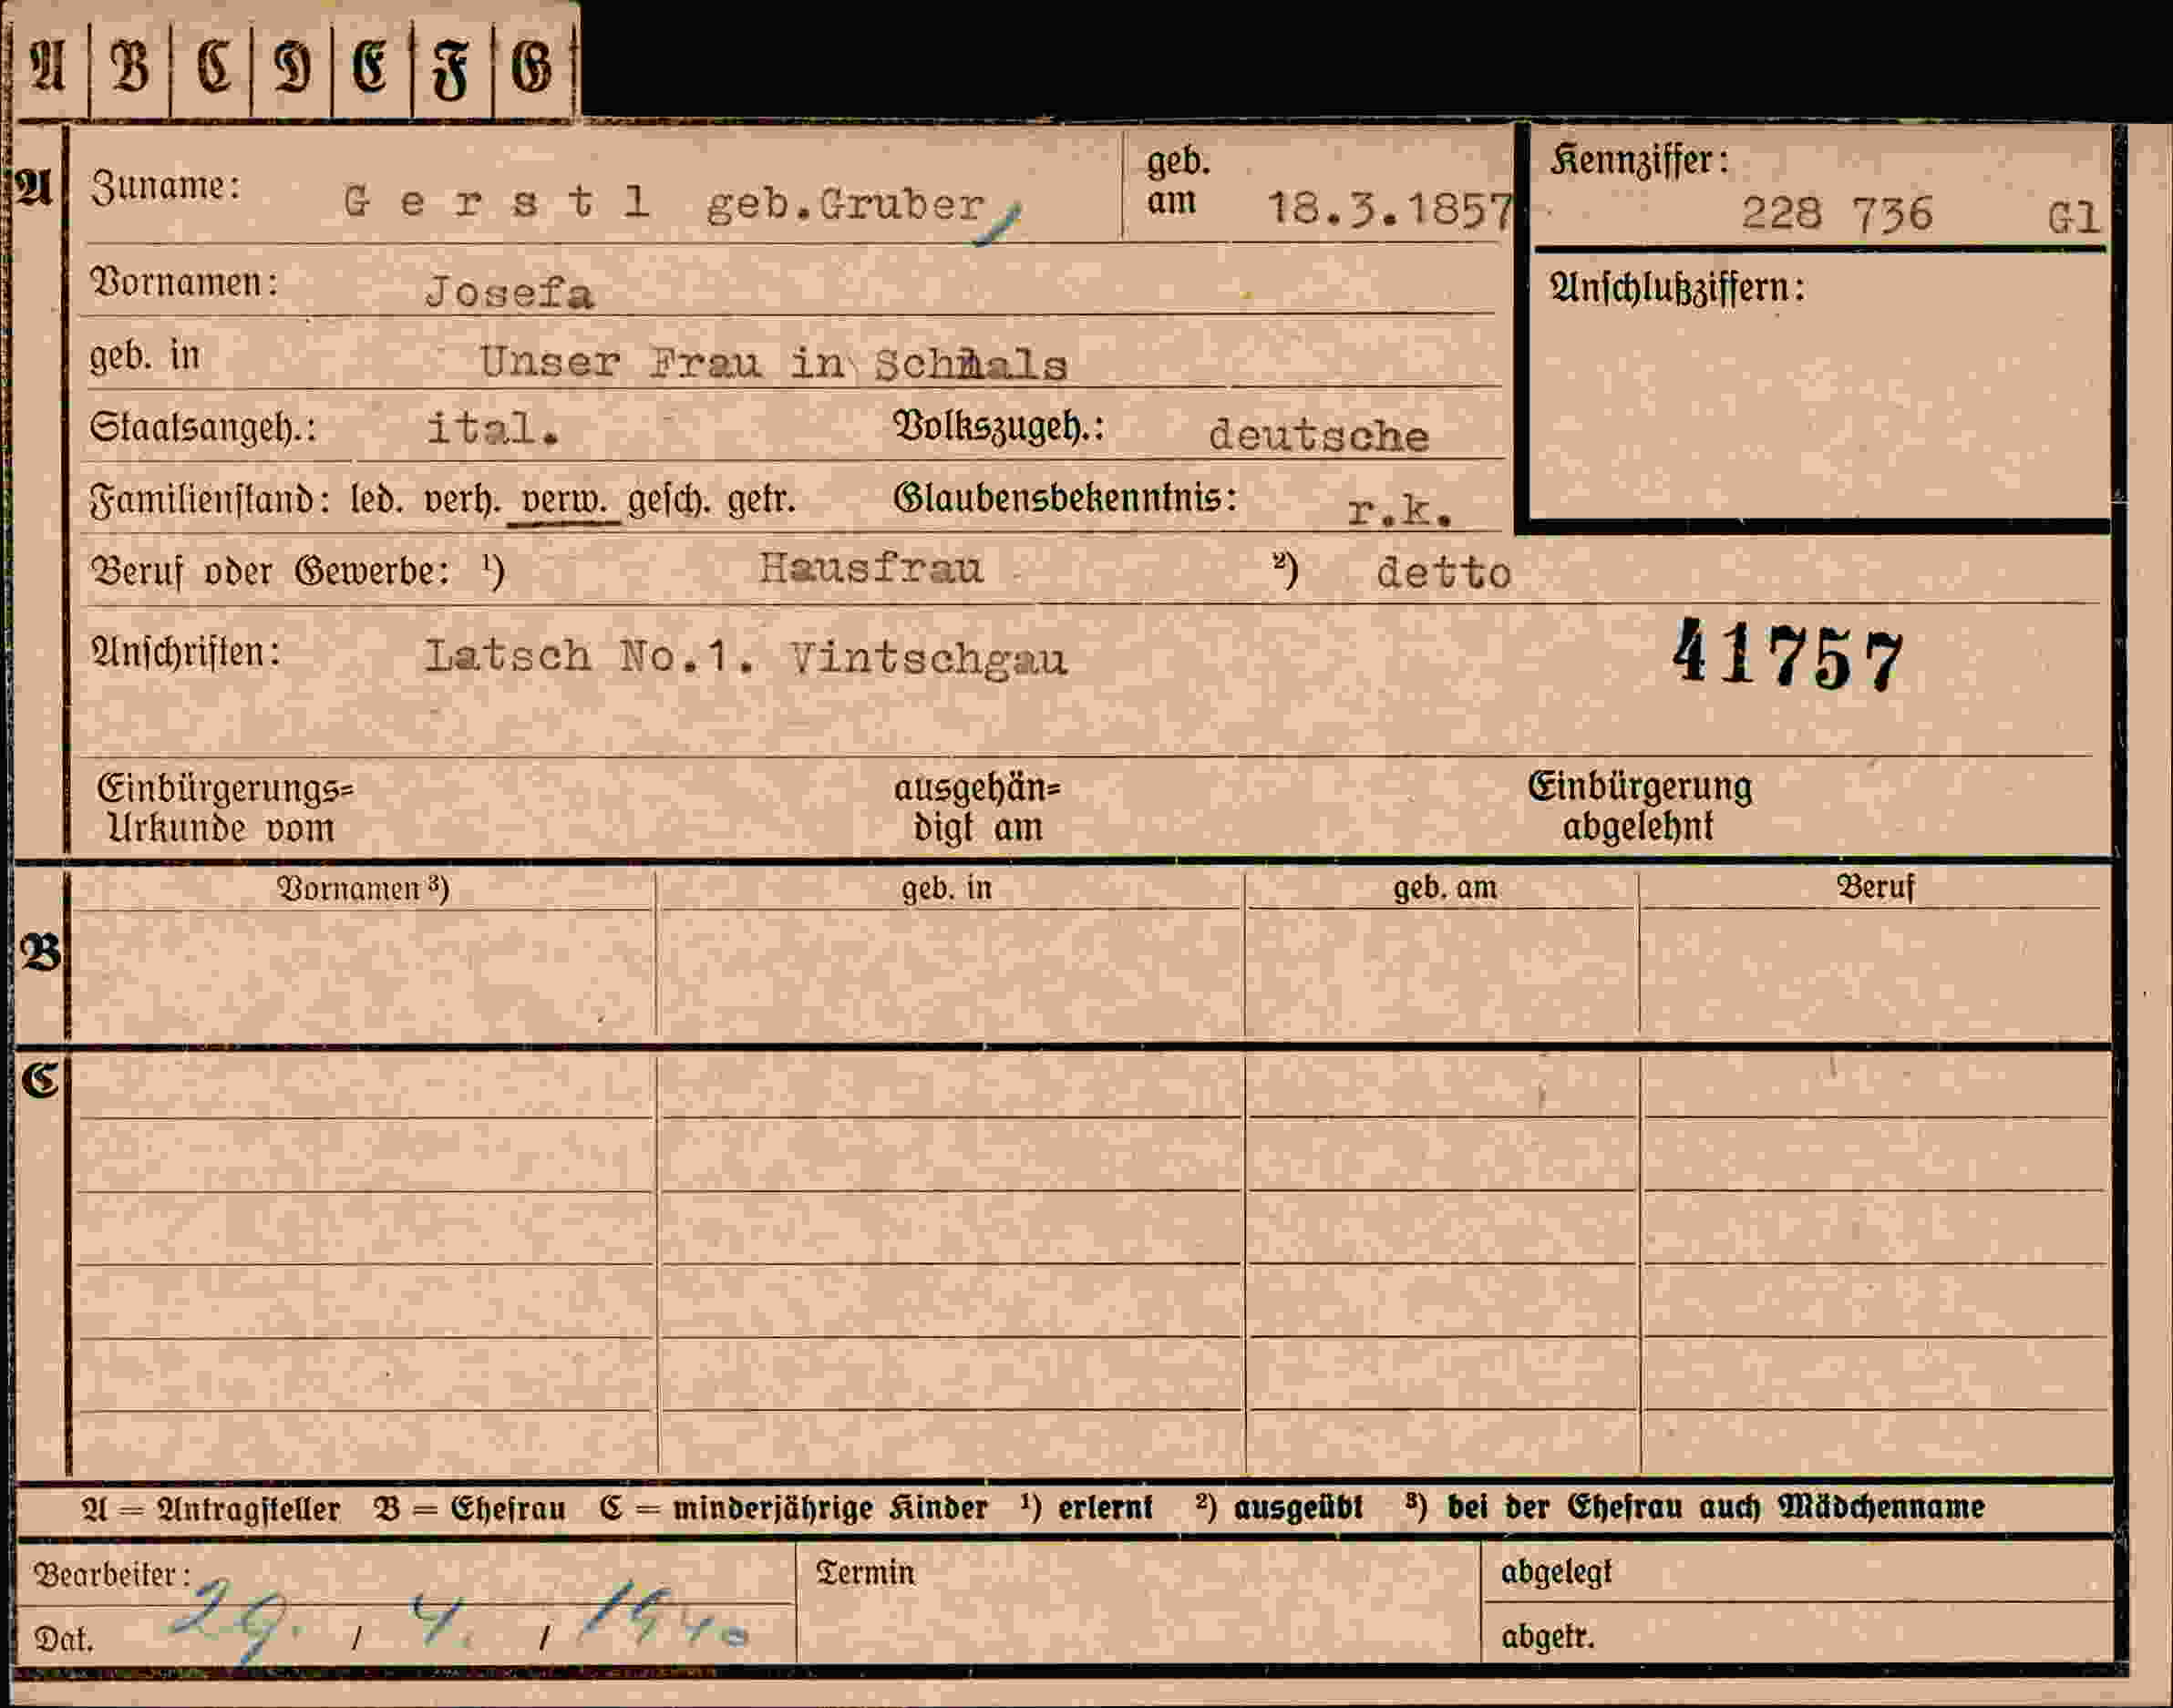 A B C D E F G
A
Zuname: Gerstl geb.Gruber,
geb. am 18.3.1857
Kennziffer: 228 736 Gl
Vornamen: Josefa
Anschlußziffern:
geb. in Unser Frau in Schnals
Staatsangeh.: ital. Volkszugeh.: deutsche
Familienstand: led. verh. verw. gesch. getr. Glaubensbekenntnis: r.k.
Beruf oder Gewerbe: ¹) Hausfrau ²) detto
Anschriften: Latsch No.1. Vintschgau 41757
Einbürgerungs= ausgehän= Einbürgerung
Urkunde vom digt am abgelehnt
Vornamen ³) geb. in geb. am Beruf
B
C
A = Antragsteller B = Ehefrau C = minderjährige Kinder ¹) erlernt ²) ausgeübt ³) bei der Ehefrau auch Mädchenname
Bearbeiter: Termin abgelegt
Dat. 29. / 4. / 1940 abgetr.